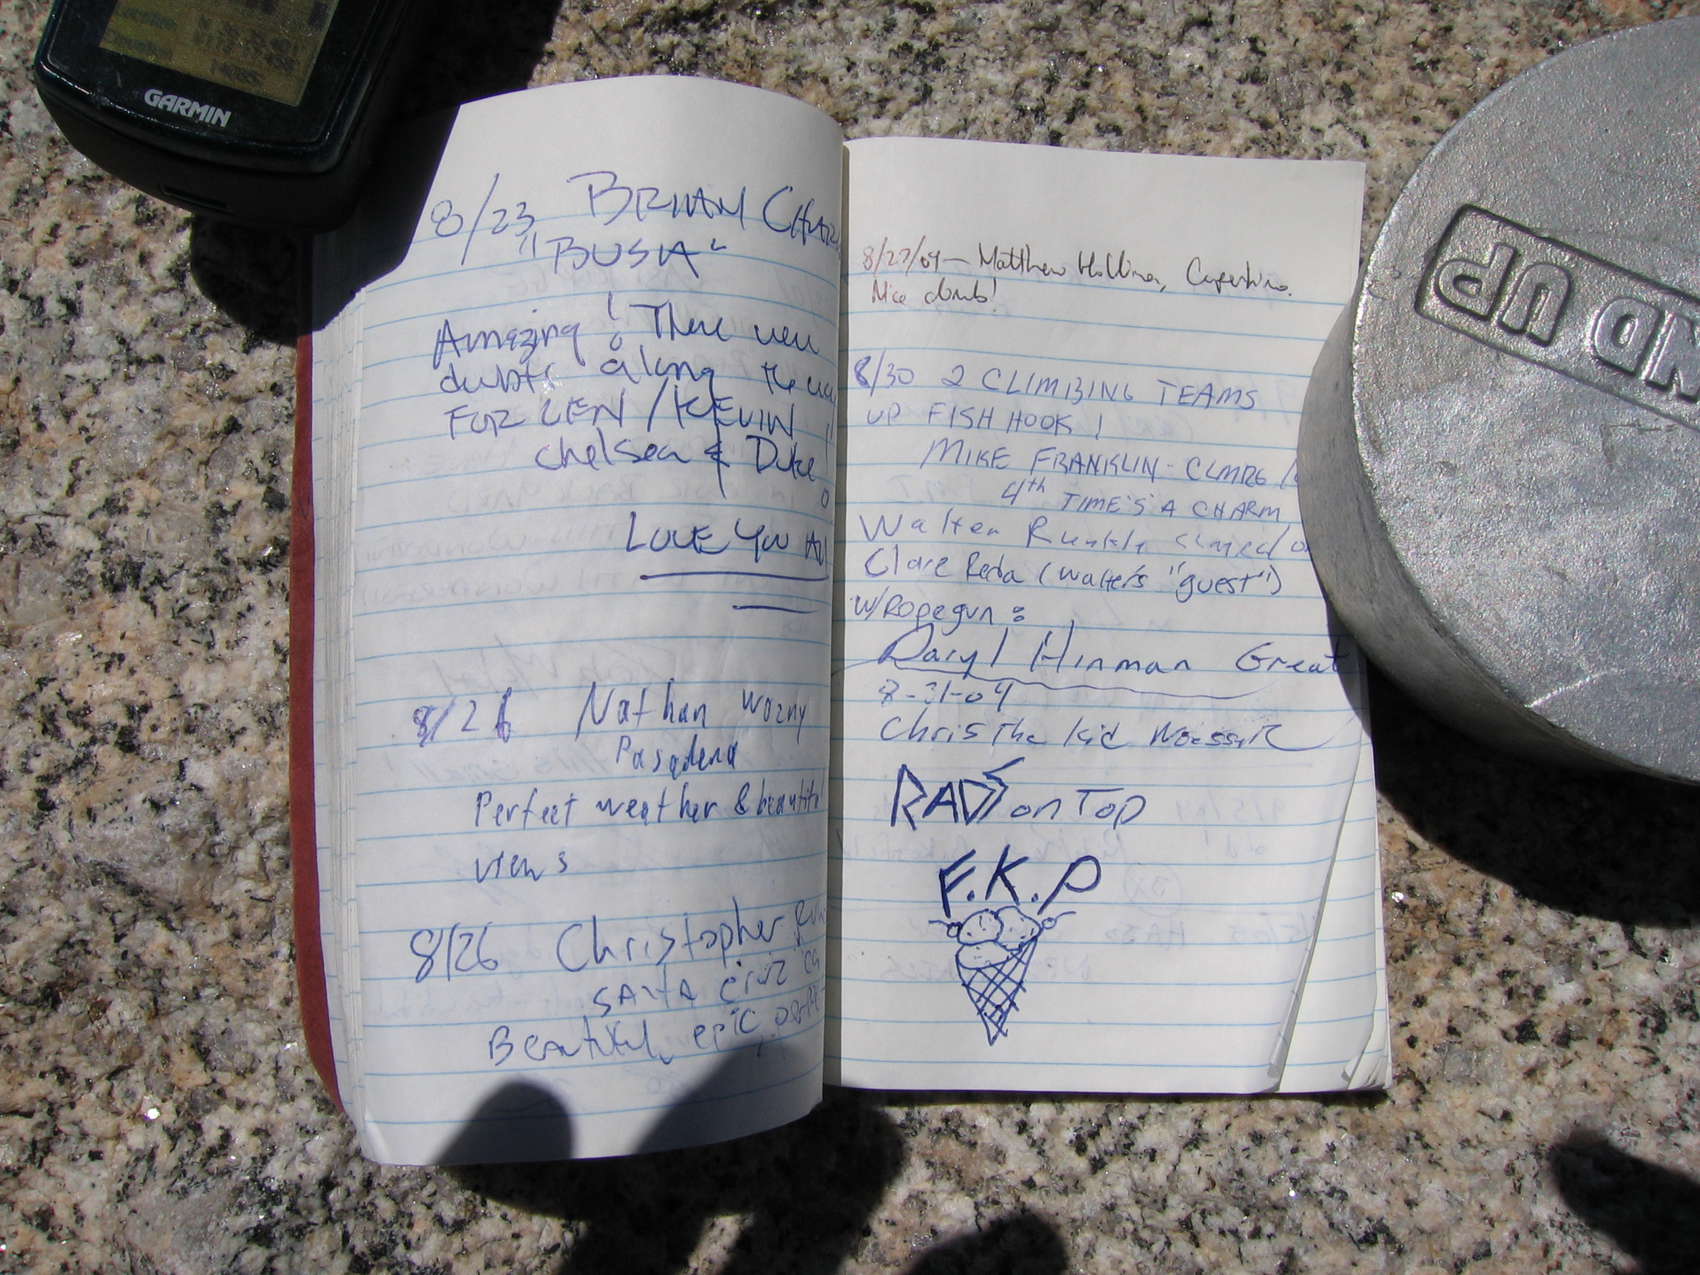 GARMIN
8/23 BRIAN
"BUSIA"
Amazing! There were
doubts along the way
FOR LEN / KEVIN
Chelsea & Duke!
LOVE YOU ALL
8/26 Nathan Wozny
Pasadena
Perfect weather & beautiful
views
8/26 Christopher
SANTA CRUZ CA
Beautiful, epic
8/27/04 - Matthew Hollina, Cupertino.
Nice climb!
8/30 2 CLIMBING TEAMS
UP FISH HOOK!
MIKE FRANKLIN - CLMRG
4th TIME'S A CHARM
Walter
Clare Reda (Walter's "guest")
w/Ropegun:
Daryl Hinman Great
8-31-04
Chris The Kid
RADS on Top
F.K.P
ND UP